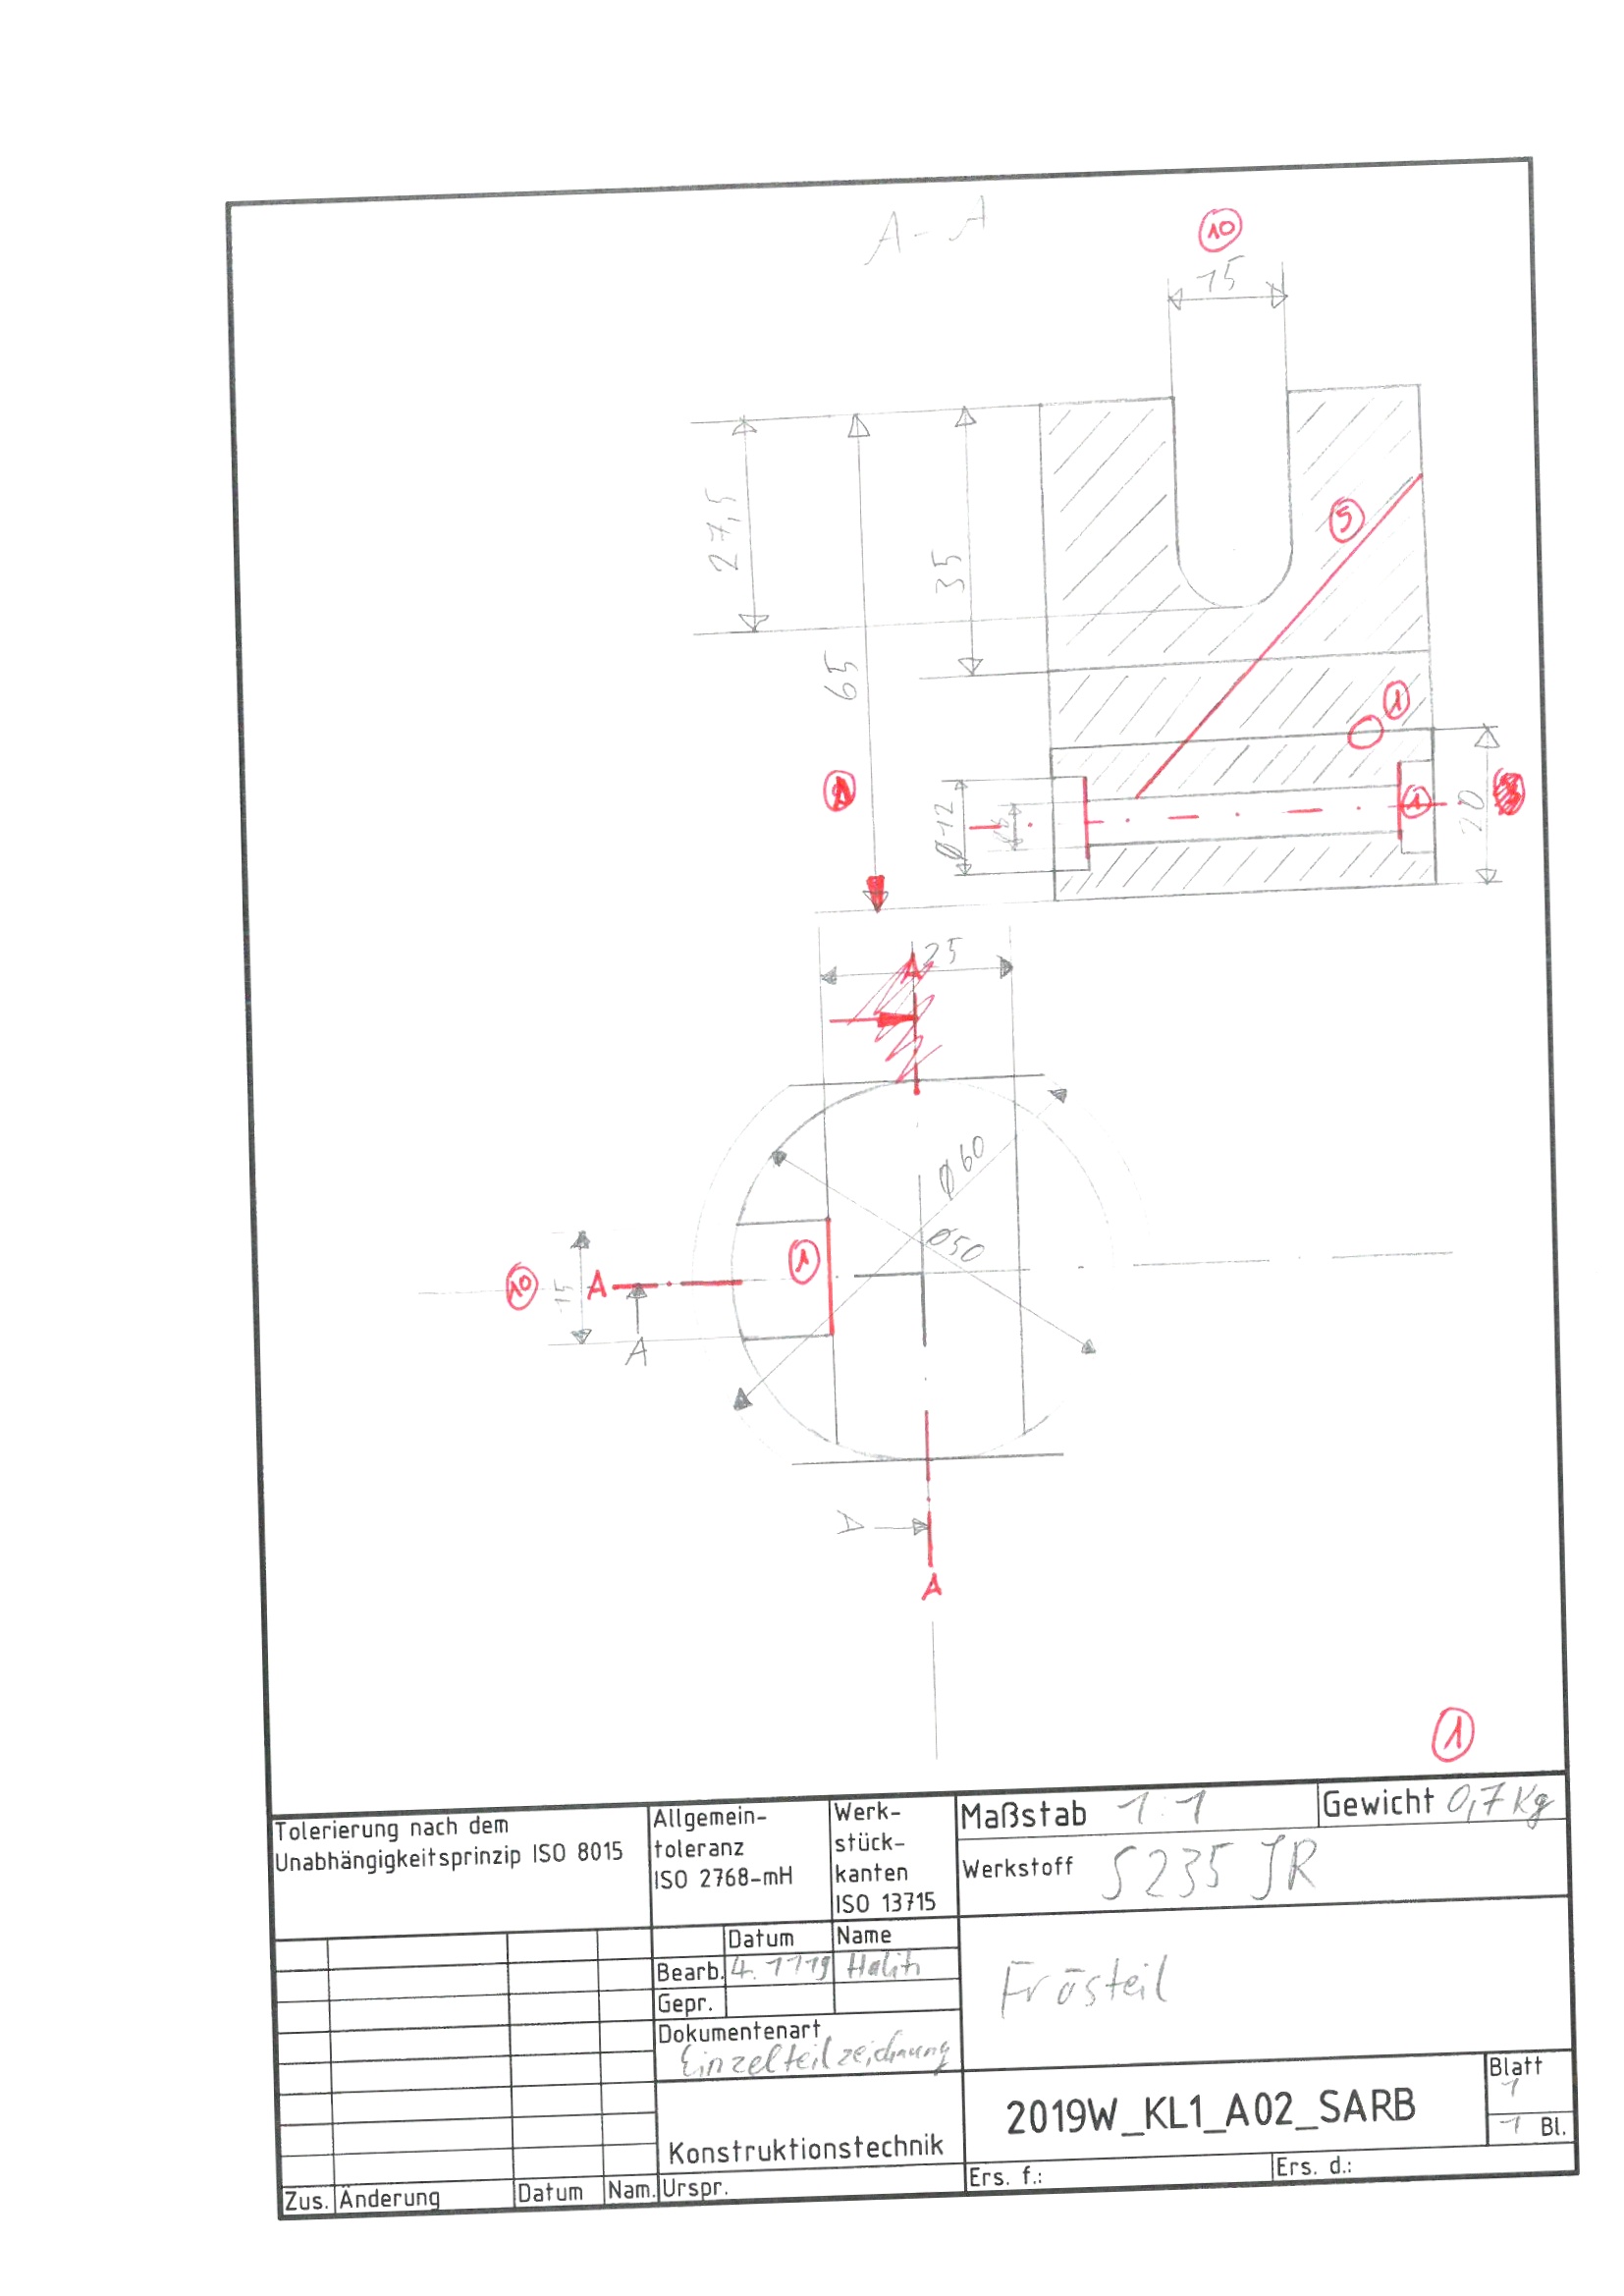 A-A
10
15
27,5
35
5
65
1
1
Ø12
20
A
25
Ø60
Ø50
1
10
15
A
A
A
A
1
Tolerierung nach dem
Unabhängigkeitsprinzip ISO 8015
Allgemein-
toleranz
ISO 2768-mH
Werk-
stück-
kanten
ISO 13715
Maßstab 1:1
Gewicht 0,7 Kg
Werkstoff S235 JR
Datum
Name
Bearb. 4.1119
Gepr.
Dokumentenart
Einzelteilzeichnung
Frästeil
Konstruktionstechnik
2019W_KL1_A02_SARB
Blatt
1
1 Bl.
Zus. Änderung Datum Nam. Urspr.
Ers. f.:
Ers. d.: